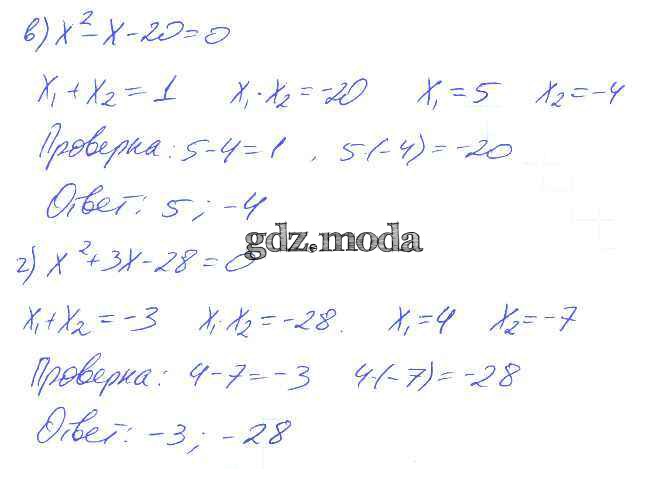 в) x² - x - 20 = 0
x₁ + x₂ = 1 x₁ · x₂ = -20 x₁ = 5 x₂ = -4
Проверка: 5 - 4 = 1 , 5·(-4) = -20
Ответ: 5 ; -4
gdz.moda
г) x² + 3x - 28 = 0
x₁ + x₂ = -3 x₁ x₂ = -28. x₁ = 4 x₂ = -7
Проверка: 4 - 7 = -3 4·(-7) = -28
Ответ: -3 ; -28